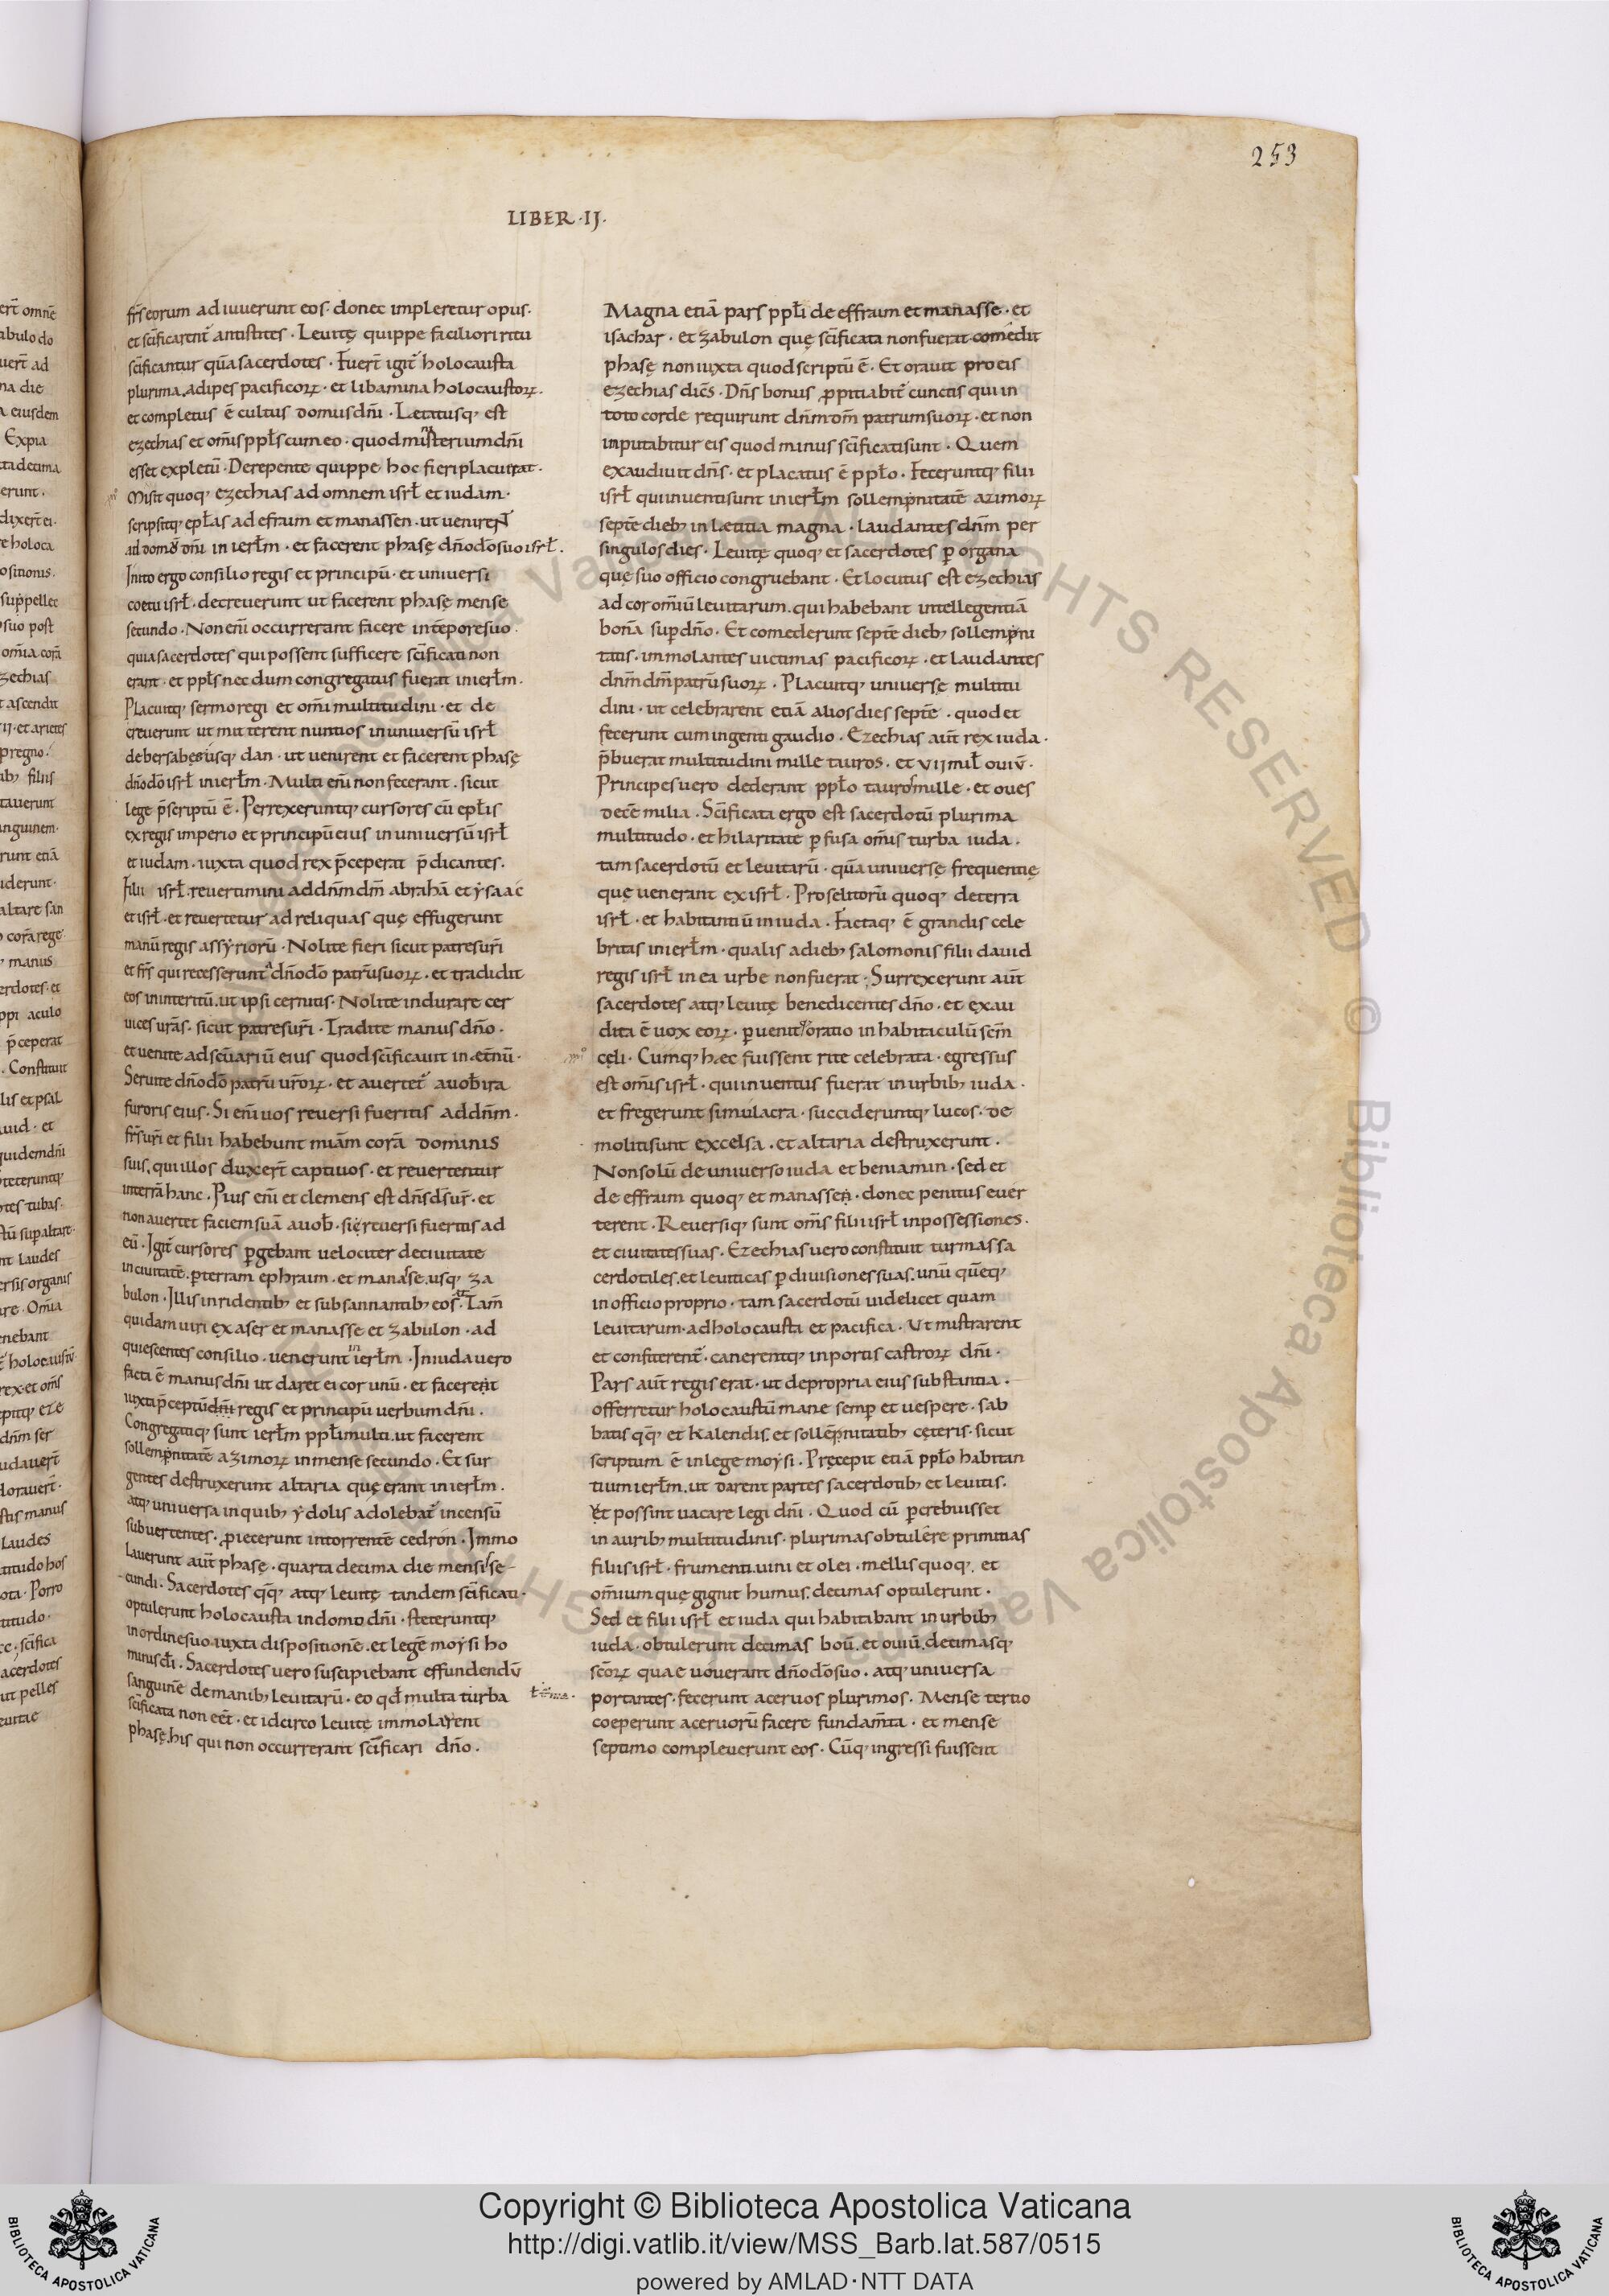 253
LIBER·IJ·
fr̄s eorum adiuuerunt eos· donec impleretur opus·
et sc̄ificarent̄ antistites · Leuitę quippe faciliori ritu
sc̄ificantur qūa sacerdotes · Fuer̄t igit̄ holocausta
plurima. adipes pacificoꝝ · et libamina holocaustoꝝ·
et completus ē cultus domus dn̄i · Letatusq; est
ezechias et om̄is ppl̄s cum eo · quod misterium dn̄i
esset expletū · Derepente quippe hoc fieri placuerat·
Misit quoq; ezechias ad omnem isrł et iudam·
scripsitq; epl̄as ad efraim et manassen · ut venirent
ad domū dn̄i in ierł̄m · et facerent phasę dn̄o dō suo isrł.
Inito ergo consilio regis et principū · et uniuersi
coetu isrł · decreuerunt ut facerent phasę mense
secundo · Non eni̅ occurrerant facere in tēpore suo·
quia sacerdotes qui possent sufficere sc̄ificati non
erant · et ppl̄s nec dum congregatus fuerat in ierł̄m·
Placuitq; sermo regi et om̄i multitudini · et de
creuerunt ut mitterent nuntios in uniuersū isrł
de bersabeę usq; dan · ut venirent et facerent phasę
dn̄o dō isrł in ierł̄m · Multi eni̅ non fecerant · sicut
lege p̄scriptū ē · Perrexeruntq; cursores cū epl̄is
ex regis imperio et principū eius in uniuersū isrł
et iudam · iuxta quod rex p̄ceperat p̄dicantes·
Filii isrł · reuertimini ad dn̄m dm̄ abrahā et ẏsaac
et isrł · et reuertetur ad reliquas quę effugerunt
manū regis assẏriorū · Nolite fieri sicut patres ur̄i
et fr̄s qui recesserunt a dn̄o dō patrū suoꝝ · et tradidit
eos in interitū. ut ipsi cernitis · Nolite indurare cer
uices ur̄as · sicut patres ur̄i · Tradite manus dn̄o ·
et uenite ad sc̄uariū eius quod sc̄ificauit in et̄nū·
Seruite dn̄o dō patrū ur̄oꝝ · et auertet̄ a uob̄ ira
furoris eius · Si eni̅ uos reuersi fueritis ad dn̄m·
fr̄s ur̄i et filii habebunt miām corā dominis
suis. qui illos duxer̄t captiuos · et reuertentur
in terrā hanc · Pius eni̅ et clemens est dn̄s d̄s ur̄ · et
non auertet faciem suā a uob̄ · si reuersi fueritis ad
eū · Igit̄ cursores pgebant uelociter de ciuitate
in ciuitatē. p terram ephraim · et manasse. usq; za
bulon · Illis inridentib; et subsannantib; eos · Tam̄
quidam uiri ex aser et manasse et zabulon · ad
quiescentes consilio · uenerunt in ierł̄m · In iuda uero
facti ē manus dn̄i ut daret ei cor unū · et facerent
iuxta p̄ceptū dn̄i regis et principū uerbum dn̄i ·
Congregatiq; sunt ierł̄m ppl̄i multi. ut facerent
sollempnitatē azimoꝝ in mense secundo · Et sur
gentes destruxerunt altaria quę erant in ierł̄m ·
atq; uniuersa in quib; ẏdolis adolebat̄ incensū
subuertentes · proiecerunt in torrentē cedron · Immo
lauerunt aut̄ phasę · quarta decima die mensis se-
cundi · Sacerdotes q̄q; atq; leuitę tandem sc̄ificati·
optulerunt holocausta in domo dn̄i · steteruntq;
in ordine suo. iuxta dispositionē · et legē moẏsi ho
minis d̄i · Sacerdotes uero suscipiebant effundendū
sanguinē de manib; leuitarū · eo qđ multa turba
sc̄ificata non eēt · et idcirco leuitę immolarent
phasę. his qui non occurrerant sc̄ificari dn̄o ·
Magna etiā pars ppl̄i de effraim et manasse · et
isachar · et zabulon quę sc̄ificata non fuerat· comedit
phasę non iuxta quod scriptū ē · Et orauit pro eis
ezechias dicēs · Dn̄s bonus propitiabit̄ cunctis qui in
toto corde requirunt dn̄m dm̄ patrum suoꝝ · et non
inputabitur eis quod minus sc̄ificati sunt · Quem
exaudiuit dn̄s · et placatus ē ppl̄o · Feceruntq; filii
isrł qui inuenti sunt in ierł̄m sollempnitatē azimoꝝ
septē dieb; in lętitia magna · laudantes dn̄m per
singulos dies · Leuitę quoq; et sacerdotes p organa
quę suo officio congruebant · Et locutus est ezechias
ad cor om̄iū leuitarum. qui habebant intellegentiā
bonā sup dn̄o · Et comederunt septē dieb; sollempni
tatis · immolantes uictimas pacificoꝝ · et laudantes
dn̄m dm̄ patrū suoꝝ · Placuitq; uniuersę multitu
dini · ut celebrarent etiā alios dies septē · quod et
fecerunt cum ingenti gaudio · Ezechias aut̄ rex iuda ·
p̄buerat multitudini mille tauros · et VII mił ouiū·
Principes uero dederant ppl̄o tauros mille · et oues
decē milia · Sc̄ificata ergo est sacerdotū plurima
multitudo · et hilaritate pfusa om̄is turba iuda ·
tam sacerdotū et leuitarū · qūa uniuersę frequentię
quę uenerant ex isrł · Proselitorū quoq; de terra
isrł · et habitantiū in iuda · Factaq; ē grandis cele
britas in ierł̄m · qualis a dieb; salomonis filii dauid
regis isrł in ea urbe non fuerat · Surrexerunt aut̄
sacerdotes atq; leuitę benedicentes dn̄o · et exau
dita ē uox eoꝝ · puenitq; oratio in habitaculū sc̄m
cęli · Cumq; hæc fuissent rite celebrata · egressus
est om̄is isrł · qui inuentus fuerat in urbib; iuda ·
et fregerunt simulacra · succideruntq; lucos · de
moliti sunt excelsa · et altaria destruxerunt ·
Non solū de uniuerso iuda et beniamin · sed et
de effraim quoq; et manassen · donec penitus euer
terent · Reuersiq; sunt om̄s filii isrł in possessiones ·
et ciuitates suas · Ezechias uero constituit turmas sa
cerdotiles. et leuiticas p diuisiones suas. unū quēq;
in officio proprio · tam sacerdotū uidelicet quam
leuitarum· ad holocausta et pacifica · Ut mīstrarent
et confiterent̄ · canerentq; in portis castroꝝ dn̄i ·
Pars aut̄ regis erat · ut de propria eius substantia ·
offerretur holocaustū mane semp et uespere · sab
batis q̄q; et Kalendis. et sollēpnitatib; cęteris · sicut
scriptum ē in lege moẏsi · Pręcepit etiā ppl̄o habitan
tium ierł̄m. ut darent partes sacerdotib; et leuitis.
Ut possint uacare legi dn̄i · Quod cū pcrebuisset
in aurib; multitudinis · plurimas obtulēre primitias
filii isrł · frumenti. uini et olei · mellis quoq;. et
om̄ium quę gignit humus. decimas optulerunt ·
Sed et filii isrł et iuda qui habitabant in urbib;
iuda · obtulerunt decimas boū. et ouiū. decimasq;
sc̄oꝝ quae uouerant dn̄o dō suo · atq; uniuersa
portantes · fecerunt aceruos plurimos · Mense tertio
coeperunt aceruorū facere fundam̄ta · et mense
septimo compleuerunt eos · Cūq; ingressi fuissent
Copyright © Biblioteca Apostolica Vaticana
http://digi.vatlib.it/view/MSS_Barb.lat.587/0515
powered by AMLAD·NTT DATA
BIBLIOTECA APOSTOLICA VATICANA
BIBLIOTECA APOSTOLICA VATICANA